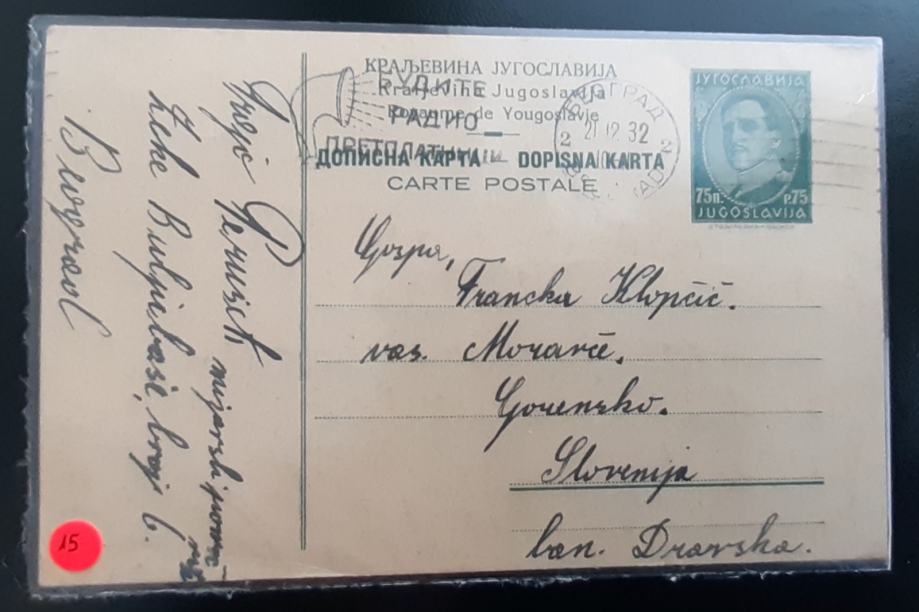 КРАЉЕВИНА ЈУГОСЛАВИЈА
Kraljevina Jugoslavija
Royaume de Yougoslavie
ДОПИСНА КАРТА DOPISNA KARTA
CARTE POSTALE
БУДИТЕ
РАДИО
ПРЕТПЛАТНИЦИ
БЕОГРАД
2 21.12.32 2
BEOGRAD
ЈУГОСЛАВИЈА
75п. p.75
JUGOSLAVIJA
Gospa,
Francka Klopčič.
vas. Moravče.
Gorensko.
Slovenija
ban. Dravska.
Zeke Buljubaše, broj 6.
Beograd
15